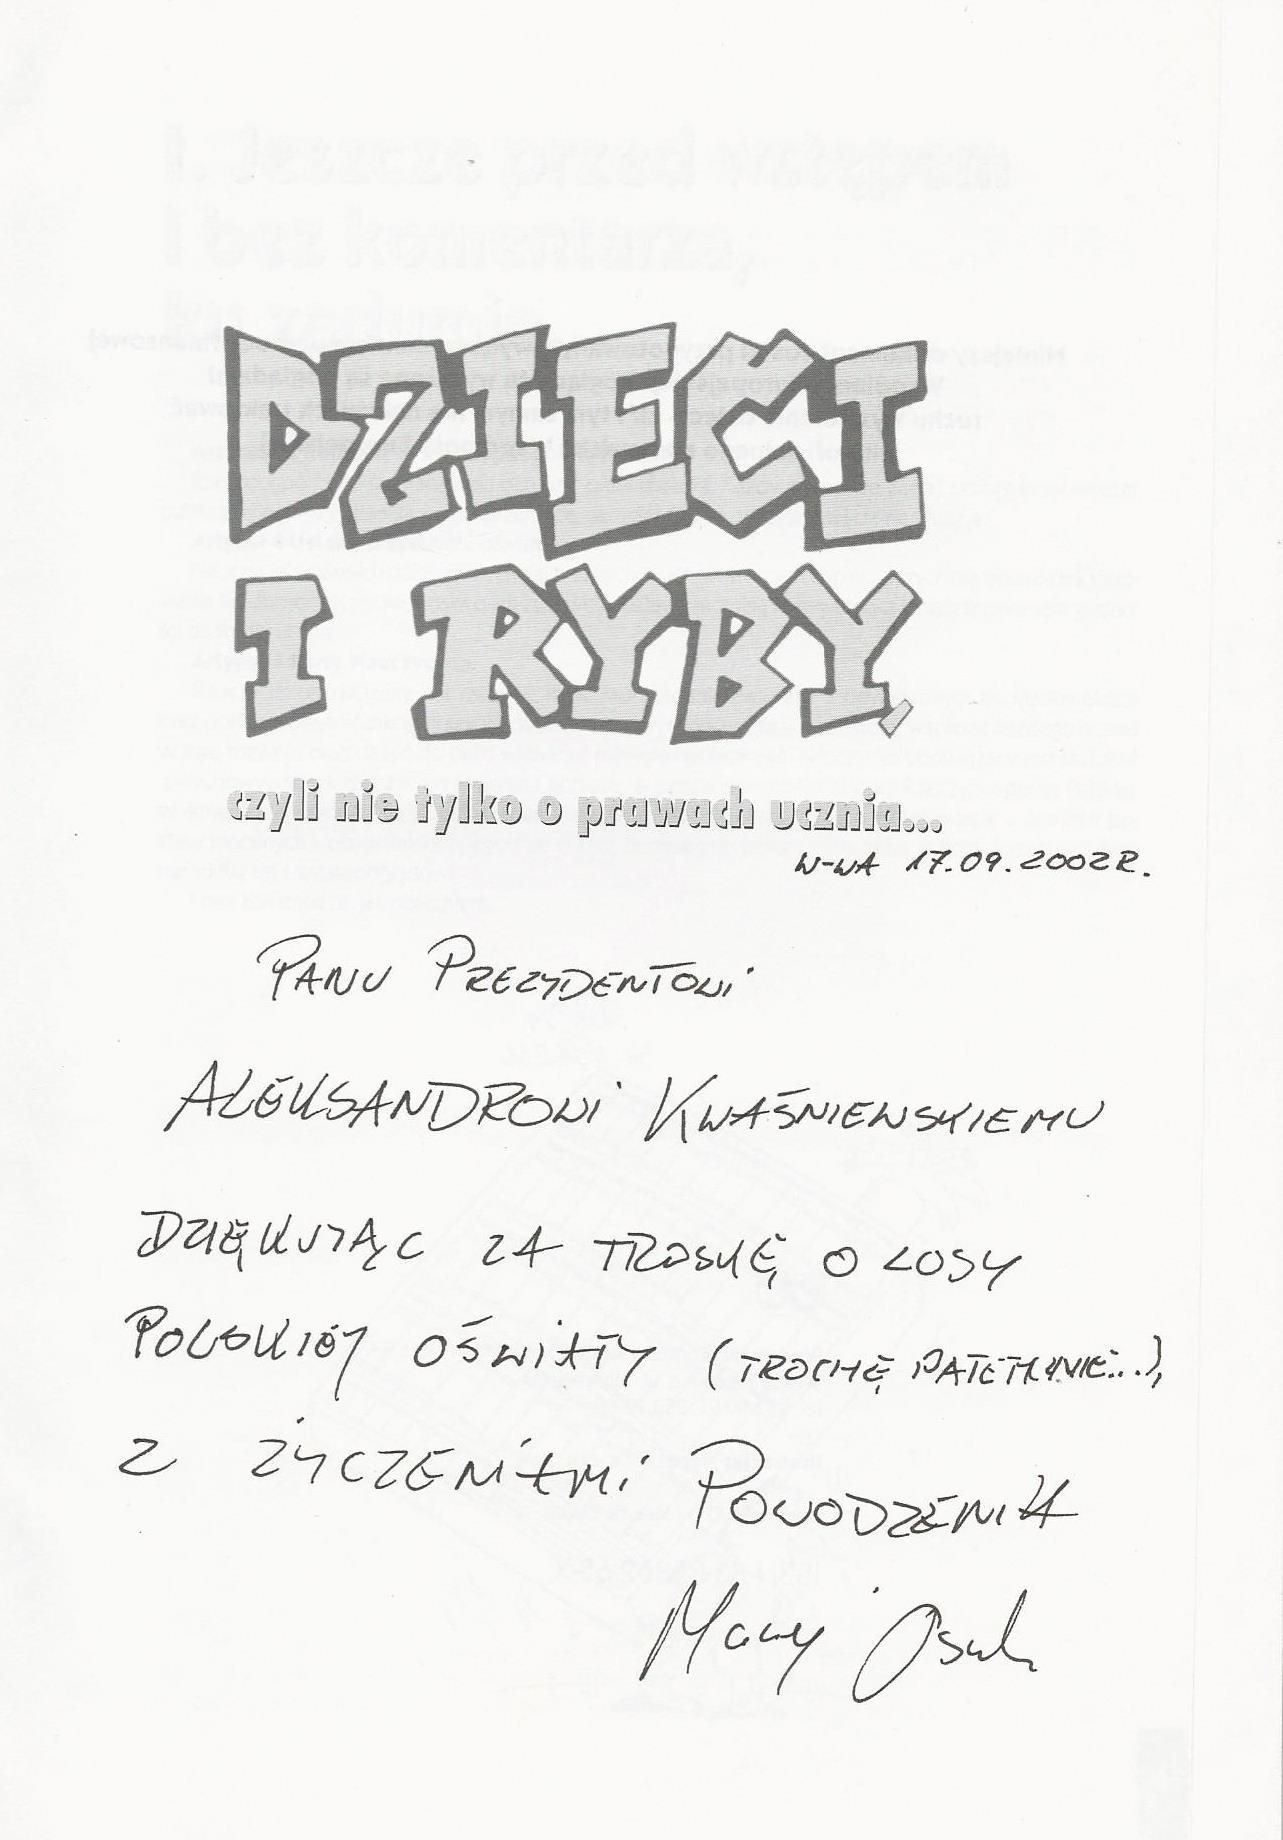 DZIECI
I RYBY,
czyli nie tylko o prawach ucznia...
W-WA 17.09.2002R.
PANU PREZYDENTOWI
ALEKSANDROWI KWAŚNIEWSKIEMU
DZIĘKUJĄC ZA TROSKĘ O LOSY
POLSKIEJ OŚWIATY (TROCHĘ PATETYCZNIE...),
Z ŻYCZENIAMI POWODZENIA